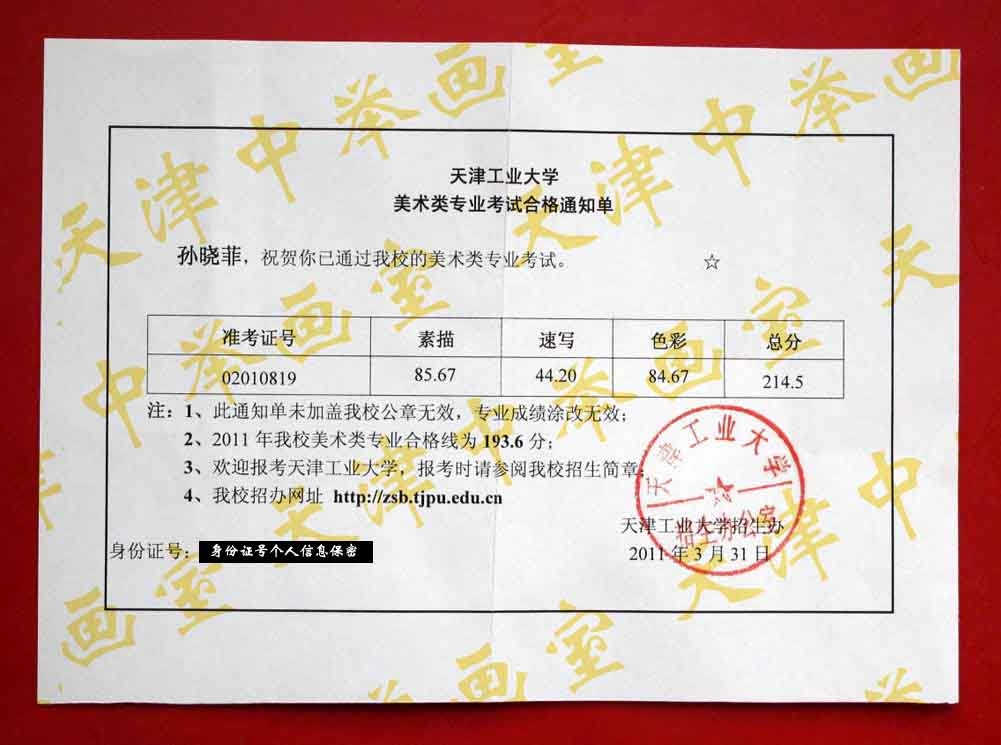 天津工业大学
美术类专业考试合格通知单
孙晓菲，祝贺你已通过我校的美术类专业考试。 ☆
准考证号 素描 速写 色彩 总分
02010819 85.67 44.20 84.67 214.5
注：1、此通知单未加盖我校公章无效，专业成绩涂改无效；
2、2011年我校美术类专业合格线为193.6分；
3、欢迎报考天津工业大学，报考时请参阅我校招生简章；
4、我校招办网址 http://zsb.tjpu.edu.cn
天津工业大学招生办
身份证号： 身份证号个人信息保密
2011年3月31日
天津工业大学
招生办公室
天津中举画室
天津中举画室
天津中举画室
天津中举画室